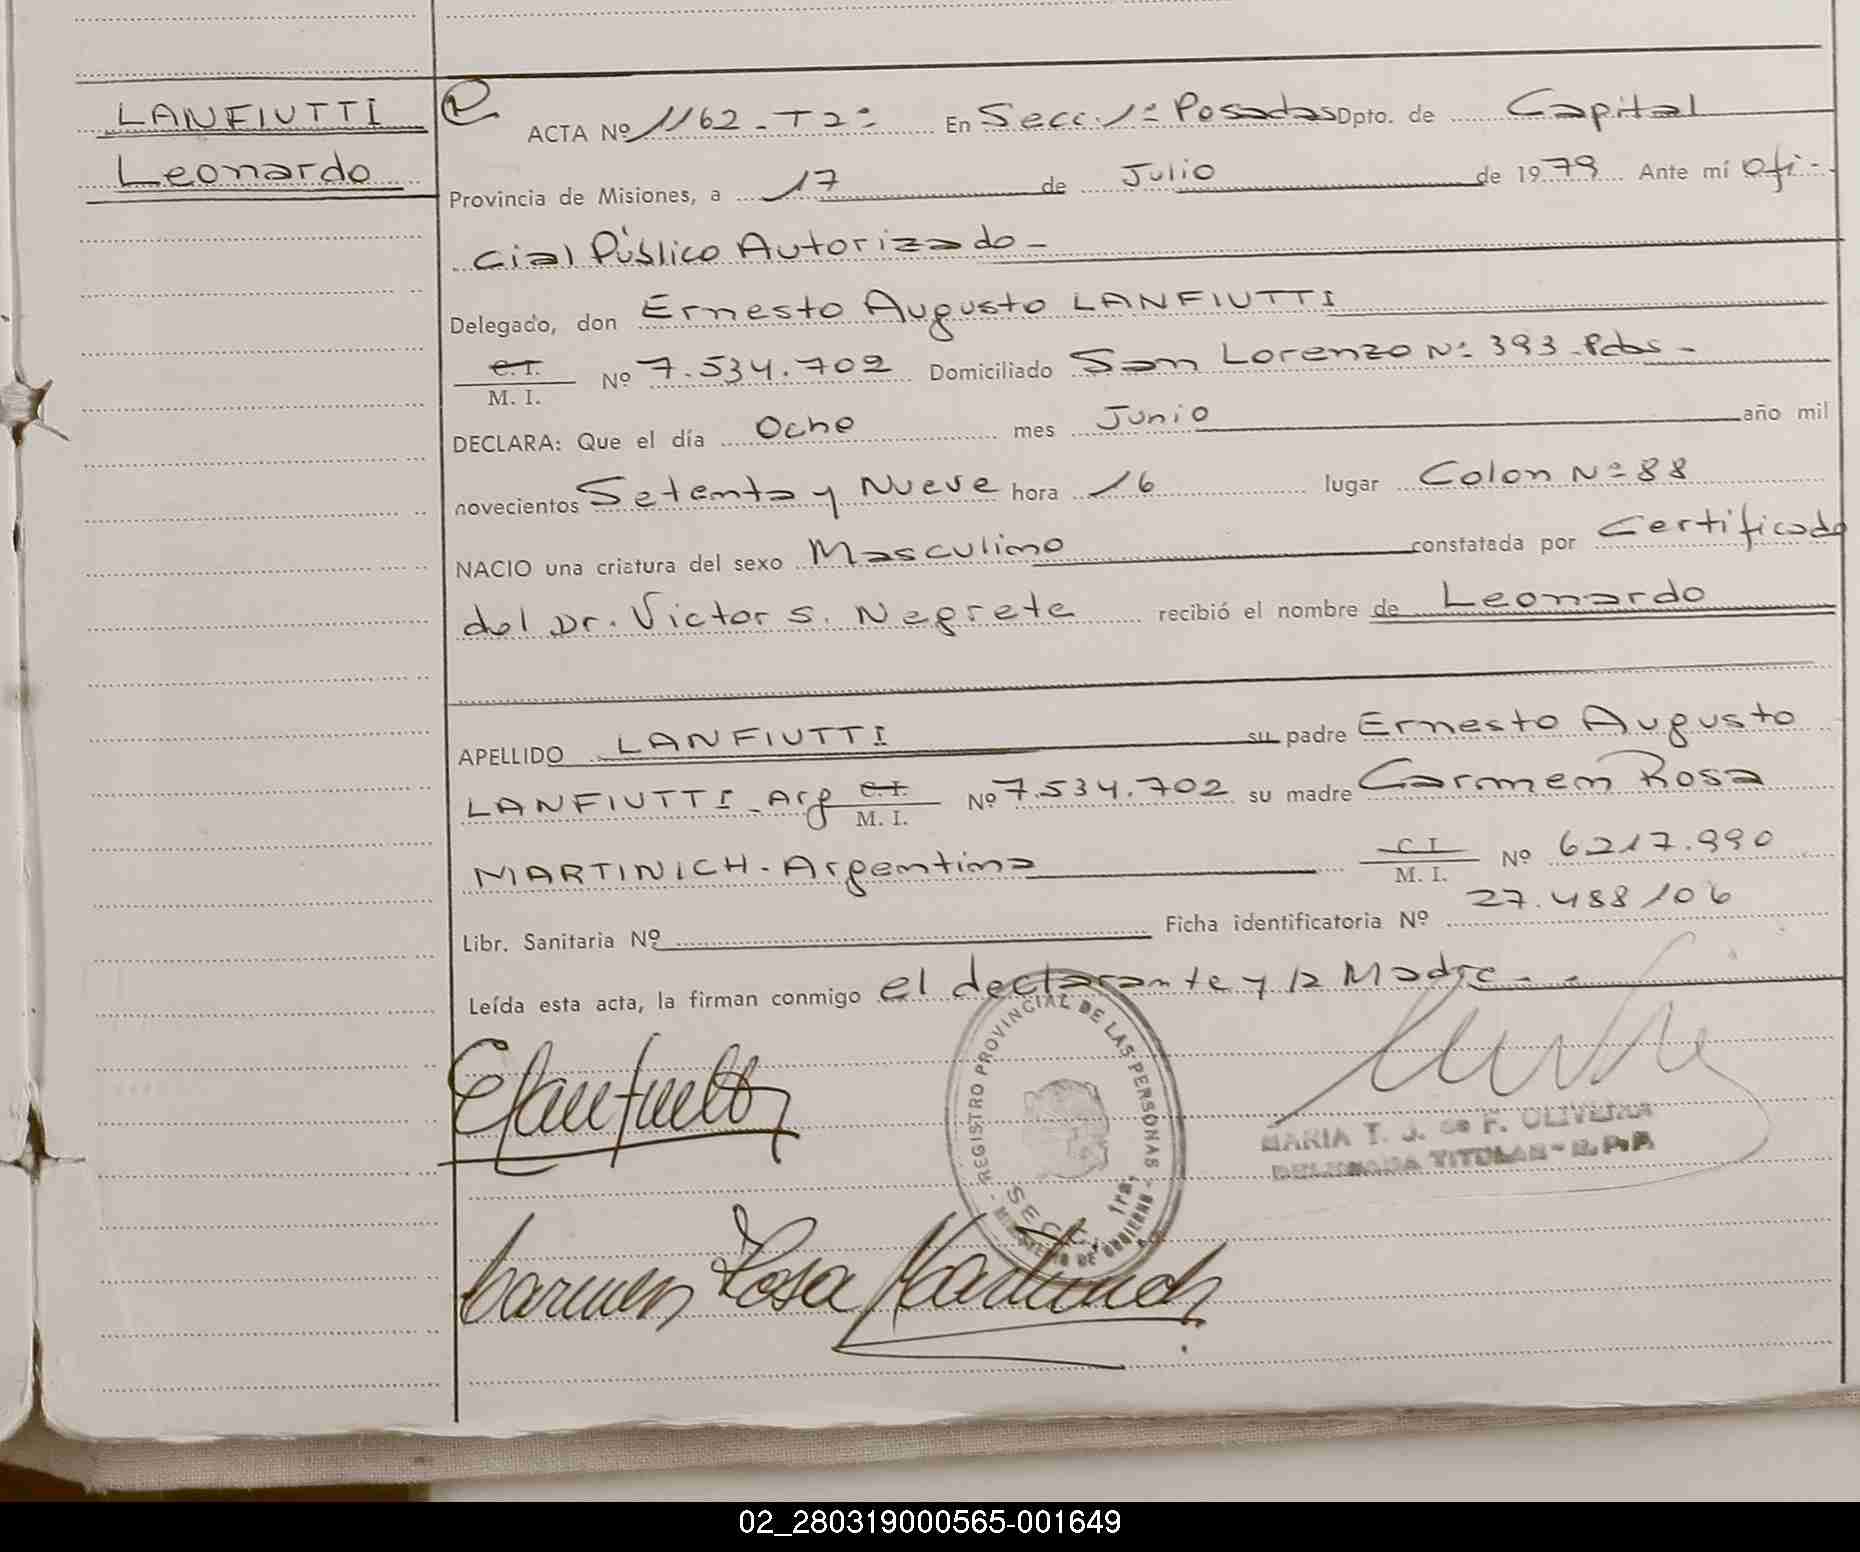 LANFIUTTI
Leonardo
ACTA Nº 1162 - T2º En Secc. 1ª Posadas Dpto. de Capital
Provincia de Misiones, a 17 de Julio de 1979 Ante mí Ofi-
cial Público Autorizado -
Delegado, don Ernesto Augusto LANFIUTTI
C.I. M. I. Nº 7.534.702 Domiciliado San Lorenzo Nº 393 - Pdas -
DECLARA: Que el día Ocho mes Junio año mil
novecientos Setenta y Nueve hora 16 lugar Colon Nº 88
NACIO una criatura del sexo Masculino constatada por Certificado
del Dr. Victor S. Negrete recibió el nombre de Leonardo
APELLIDO LANFIUTTI su padre Ernesto Augusto
LANFIUTTI - Arg C.I. M. I. Nº 7.534.702 su madre Carmen Rosa
MARTINICH - Argentina C I M. I. Nº 6217.990
Libr. Sanitaria Nº Ficha identificatoria Nº 27.488106
Leída esta acta, la firman conmigo el declarante y la Madre - -
REGISTRO PROVINCIAL DE LAS PERSONAS - MINISTERIO DE GOBIERNO -
SECC. 1ra.
MARIA T. J. de F. OLIVEIRA
DELEGADA TITULAR - R.P.P
Carmen Rosa Martinich
02_280319000565-001649